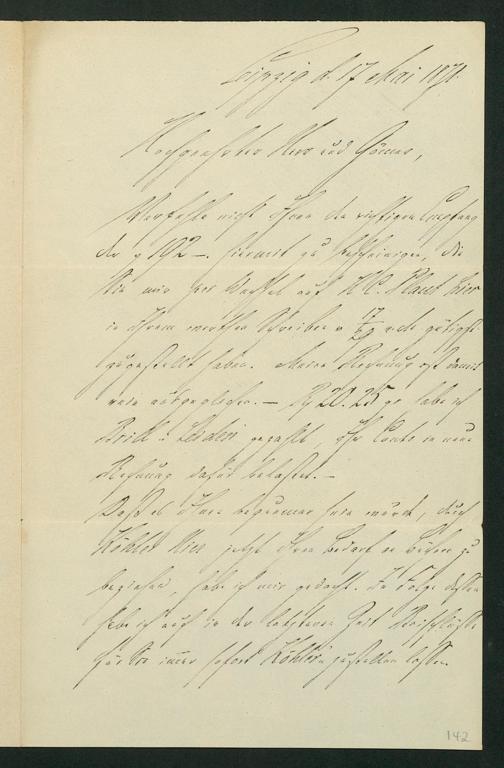 Leipzig d. 17 Mai 1871.
Hochgeehrter Herr und Gönner,
Verfehle nicht Ihnen den richtigen Empfang
der 192 –. hiermit zu bescheinigen, die
Sie mir per Wechsel auf H. C. Plaut hier
in Ihrem werthen Schreiben v. gütigst
zugestellt haben. Meine Rechnung ist damit
rein ausgeglichen. – 20. 25 gr habe ich
Brill in Leiden gezahlt, Ihr Conto in neue
Rechnung dafür belastet. –
Daß es Ihnen bequemer sein würde, durch
Köhler hier jetzt Ihren Bedarf an Büchern zu
beziehen, habe ich mir gedacht. In Folge dessen
habe ich auch in der letzteren Zeit
für Sie immer sofort Köhler zustellen lassen.
142